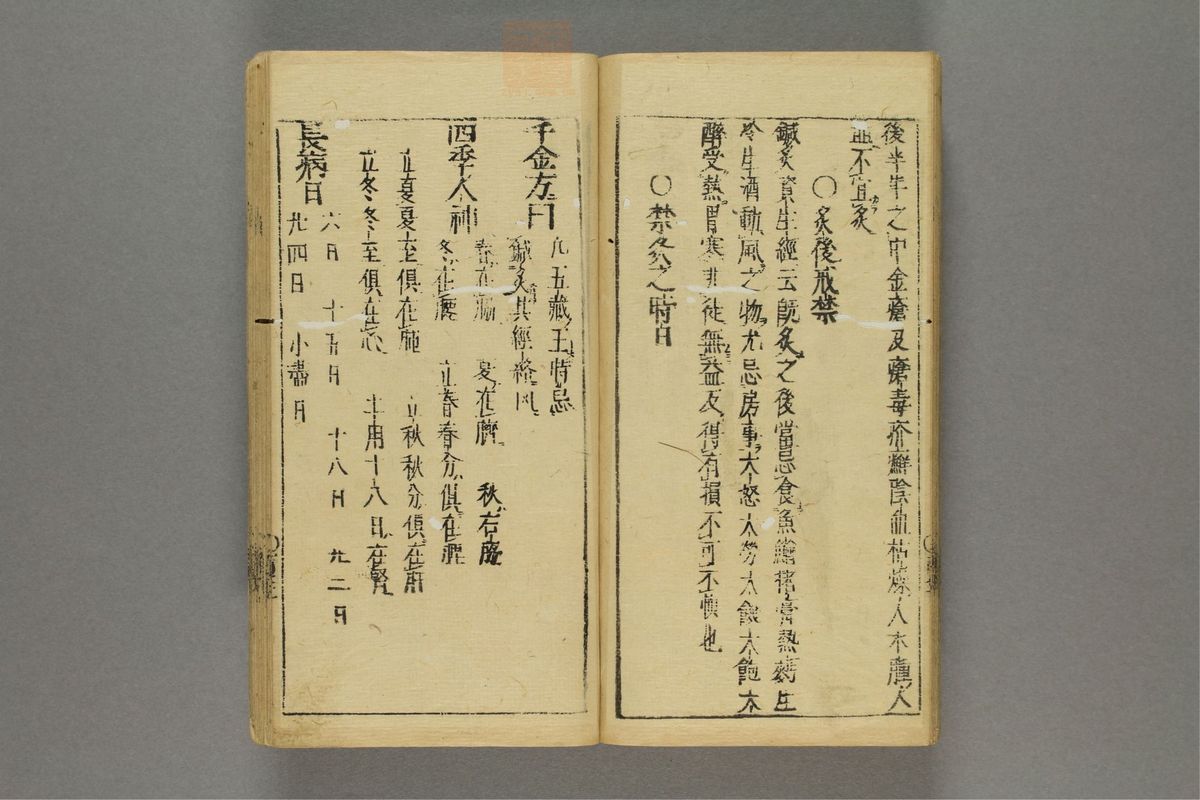 後半年之中金瘡及瘡毒疥癬陰血枯燥人木賸人
並不宜灸
〇灸後戒禁
鍼灸資生經云既灸之後當忌食魚鱠猪膏熱麪生
冷生酒動風之物尤忌房事大怒大勞大飢大飽大
醉受熱冒寒非徒無益反得有損不可不慎也
〇禁灸之時日
千金方曰 凡五藏王時忌
鍼灸其經絡凶
四季人神 春在 夏在臍 秋右
冬在腰 立春春分俱在
立夏夏至俱在 立秋秋分俱在
立冬冬至俱在心 土用十八日在腎
長病日 六日 十五日 十八日 廿二日
廿四日 小盡日